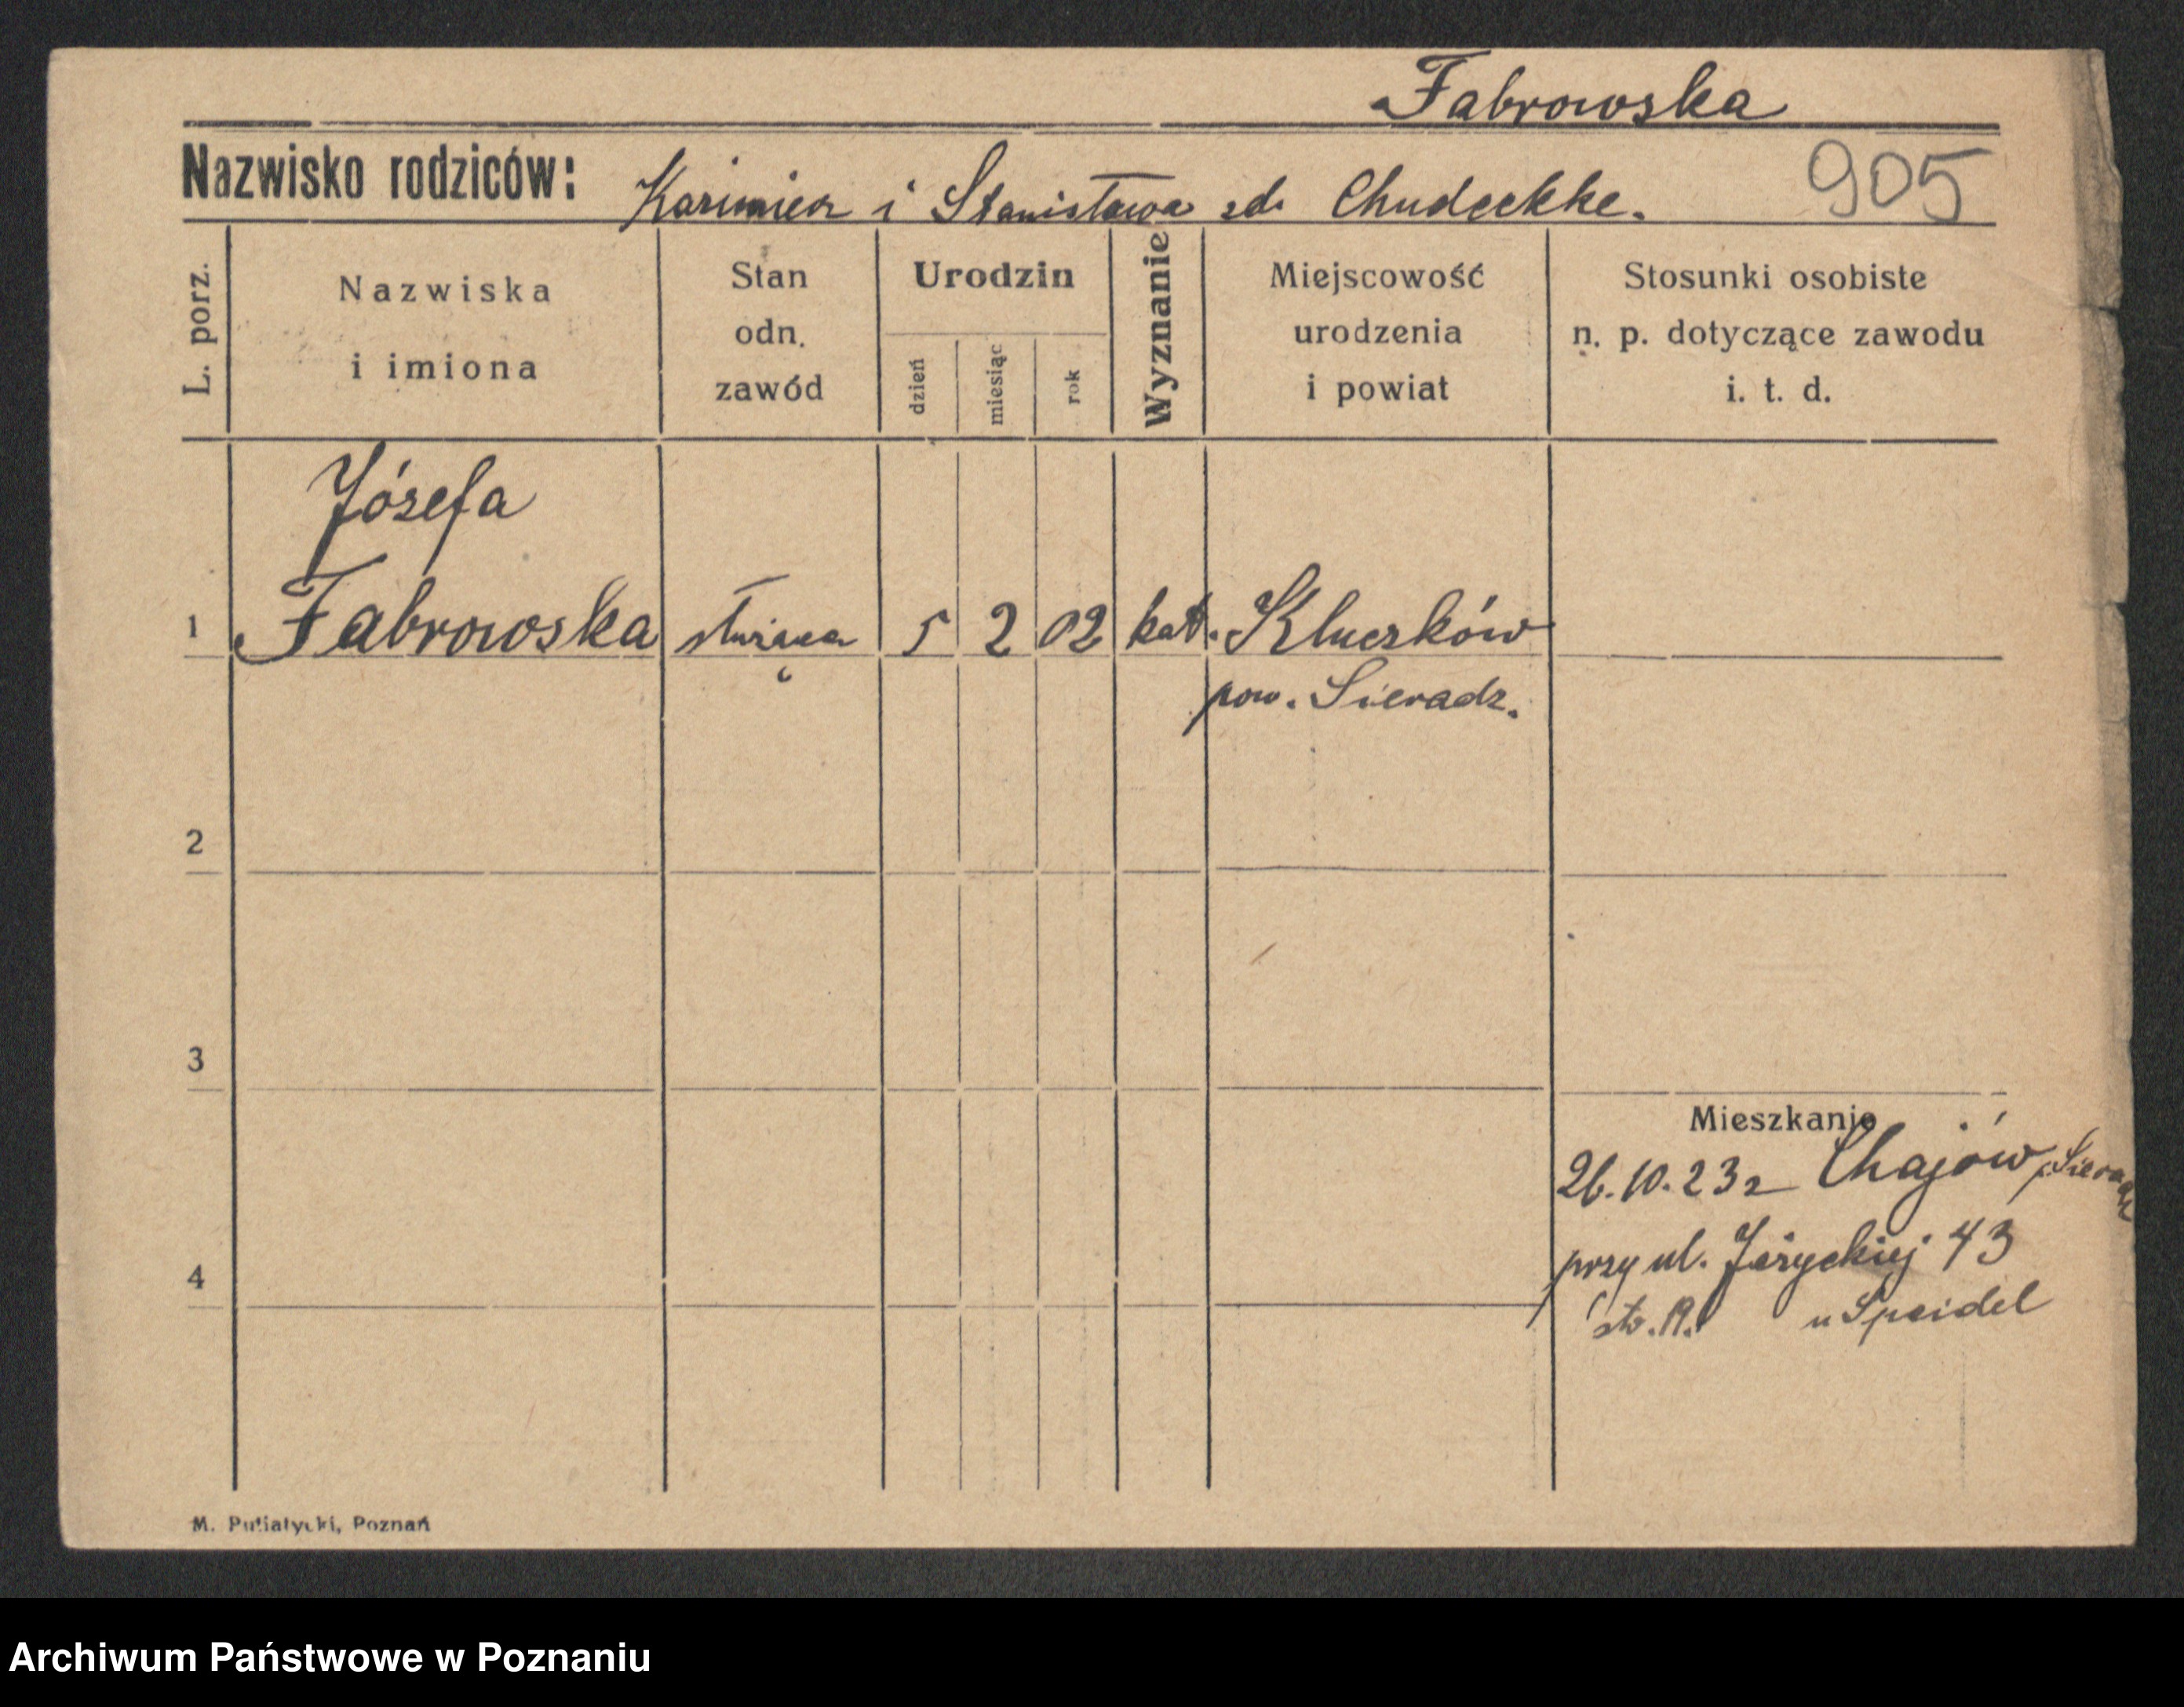 Fabrowska
Nazwisko rodziców: Kazimierz i Stanisława zd. Chudeckke. 905
L. porz.
Nazwiska
i imiona
Stan
odn.
zawód
Urodzin
dzień
miesiąc
rok
Wyznanie
Miejscowość
urodzenia
i powiat
Stosunki osobiste
n. p. dotyczące zawodu
i. t. d.
Józefa
1 Fabrowska służąca 5 2 02 kat. Kluczków
pow. Sieradz.
2
3
Mieszkanie
26.10.23 z Chajów p. Sieradz
przy ul. Jeżyckiej 43
4
u Speidel
M. Putiatycki, Poznań
Archiwum Państwowe w Poznaniu